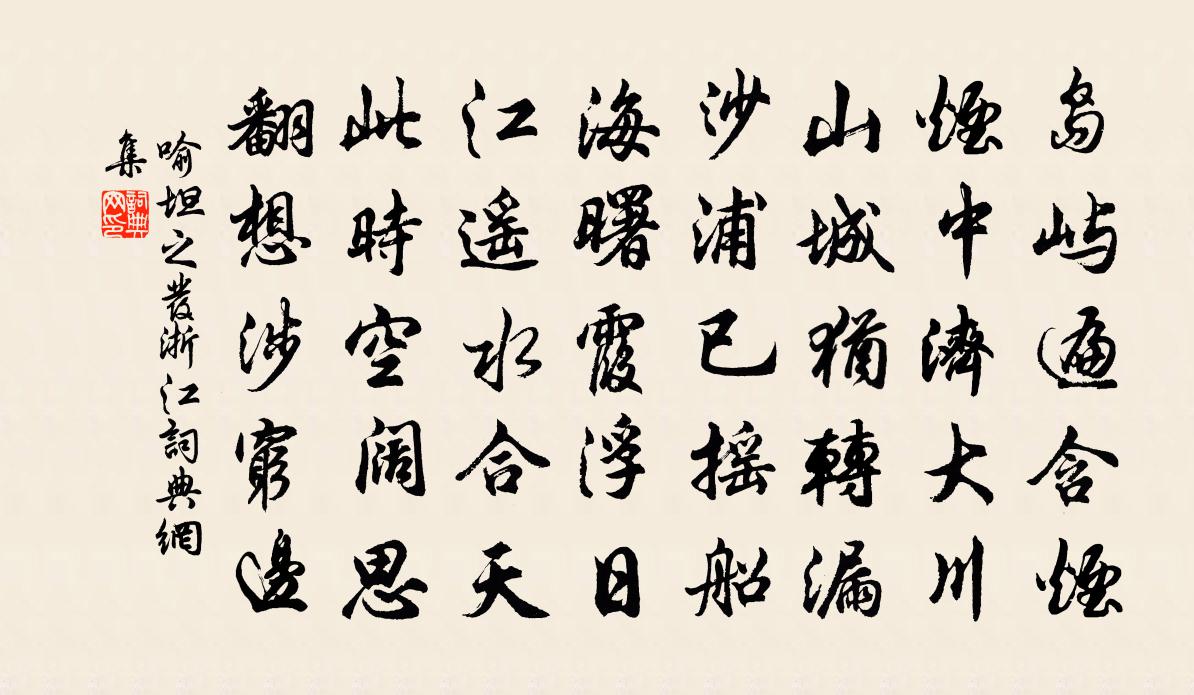 島嶼遍含煙
煙中濟大川
山城猶轉漏
沙浦已搖船
海曙霞浮日
江遥水合天
此時空闊思
翻想涉窮邊
喻坦之發浙江詞典網
集
詞典網印